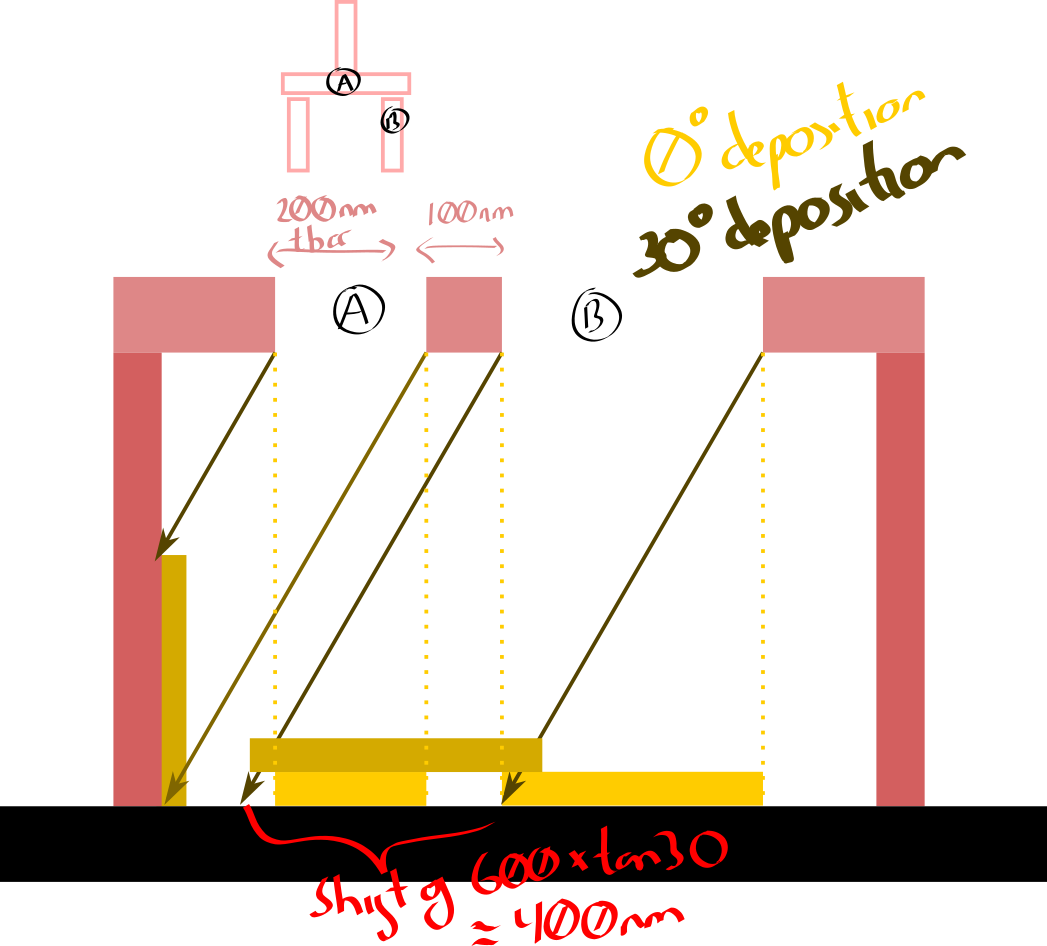 A
B
0° deposition
30° deposition
200nm
tbar
100nm
A
B
shift of 600×tan30
≈ 400nm